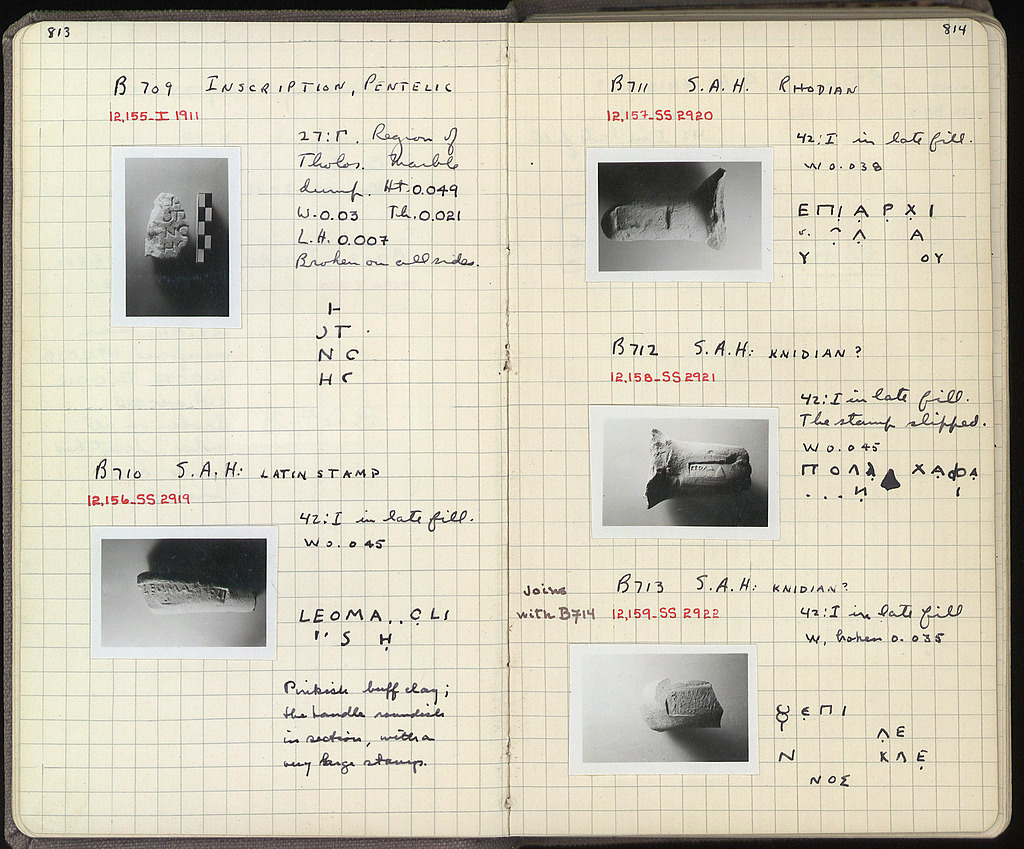 813
B 709 INSCRIPTION, PENTELIC
12,155-I 1911
27:Γ. Region of
Tholos. Marble
dump. Ht. 0.049
W. 0.03 Th. 0.021
L.H. 0.007
Broken on all sides.
Η
ϽΤ
Ν C
Η C
B 710 S.A.H: LATIN STAMP
12,156-SS 2919
42:I in late fill.
W 0.045
LEOMA..C̣LI
S Ḥ
Pinkish buff clay;
the handle roundish
in section, with a
very large stamp.
814
B 711 S.A.H. RHODIAN
12,157-SS 2920
42:I in late fill.
W 0.038
ΕΠΙ̣Α̣ΡΧ̣Ι
Λ̣ Α
Υ ΟΥ
B 712 S.A.H: KNIDIAN?
12,158-SS 2921
42:I in late fill.
The stamp slipped.
W 0.045
ΠΟΛΛ̣ ΧΑ̣Φ̣Α̣
...Η̣ Ι
Joins
with B714
B 713 S.A.H: KNIDIAN?
12,159-SS 2922
42:I in late fill
W. broken 0.035
Ε̣ΠΙ
Λ̣Ε
Ν ΚΛΕ̣
ΝΟΣ